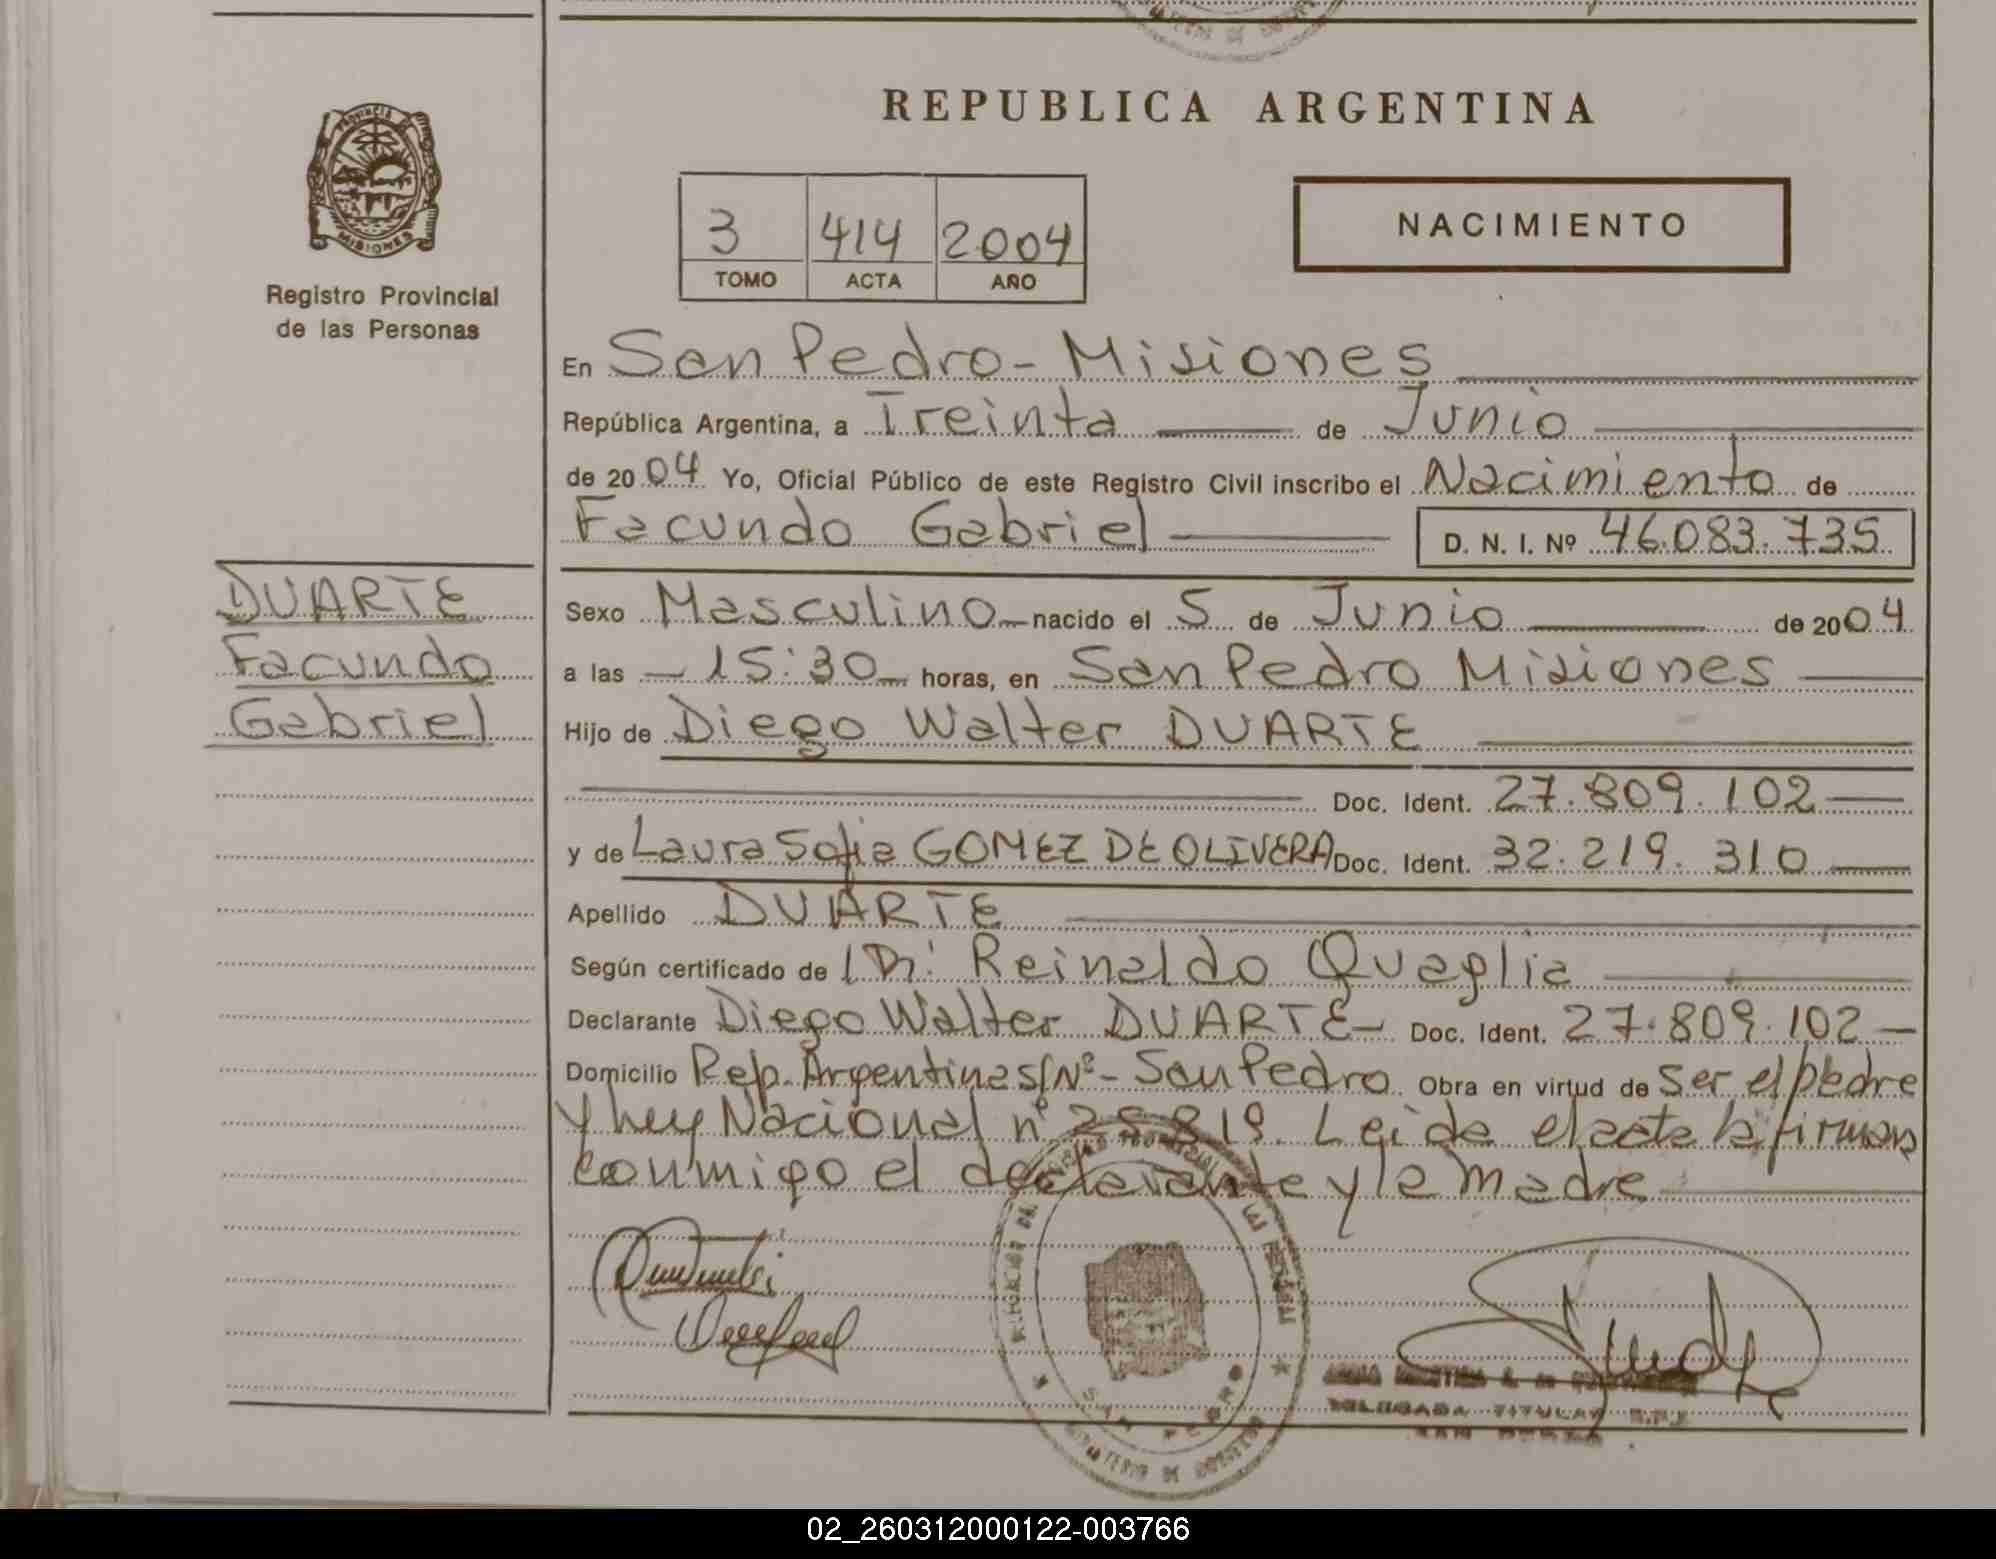 REPUBLICA ARGENTINA
PROVINCIA DE
MISIONES
Registro Provincial
de las Personas
3 414 2004
TOMO ACTA AÑO
NACIMIENTO
En San Pedro - Misiones
República Argentina, a Treinta de Junio
de 2004 Yo, Oficial Público de este Registro Civil inscribo el Nacimiento de
Facundo Gabriel D. N. I. Nº 46.083.735
DUARTE
Facundo
Gabriel
Sexo Masculino nacido el 5 de Junio de 2004
a las 15:30 horas, en San Pedro Misiones
Hijo de Diego Walter DUARTE
Doc. Ident. 27.809.102
y de Laura Sofia GOMEZ DE OLIVERA Doc. Ident. 32.219.310
Apellido DUARTE
Según certificado de Dr. Reinaldo Quaglia
Declarante Diego Walter DUARTE Doc. Ident. 27.809.102
Domicilio Rep. Argentina S/Nº - San Pedro Obra en virtud de Ser el padre
y Ley Nacional nº 25.819. Leida el acta la firman
conmigo el declarante y la madre
DELEGADA TITULAR R.P.P.
SAN PEDRO
02_260312000122-003766